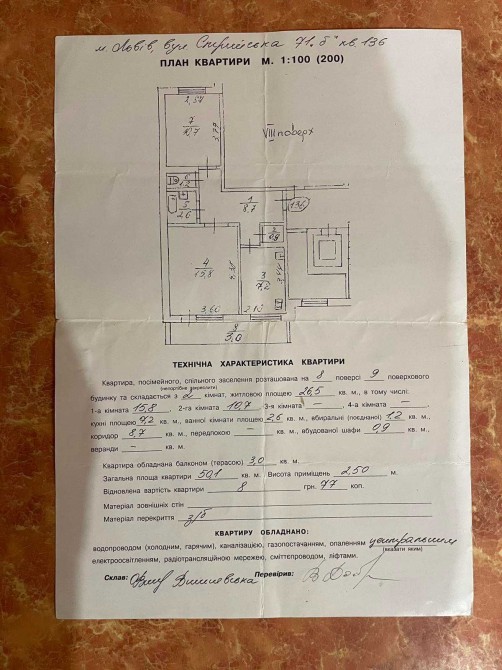 м. Львів, вул Стрийська 71 "б" кв. 136
ПЛАН КВАРТИРИ М. 1:100 (200)
2,57
7
10,7
VIII поверх
6
1,2
5
2,6
1
8,7
136
2
0,9
4
15,8
3
3,60
2,10
8
3,0
ТЕХНІЧНА ХАРАКТЕРИСТИКА КВАРТИРИ
Квартира, посімейного, спільного заселення розташована на 8 поверсі 9 поверхового
(непотрібне закреслити)
будинку та складається з 2 кімнат, житловою площею 26,5 кв. м., в тому числі:
1-а кімната 15,8, 2-га кімната 10,7, 3-я кімната –, 4-а кімната –,
кухні площею 7,2 кв. м., ванної кімнати площею 2,6 кв. м., вбиральні (поєднаної) 1,2 кв. м.,
коридор 8,7 кв. м., передпокою – кв. м., вбудованої шафи 0,9 кв. м.,
веранди – кв. м.
Квартира обладнана балконом (терасою) 3,0 кв. м.
Загальна площа квартири 50,1 кв. м. Висота приміщень 2,50 м.
Відновлена вартість квартири 8 грн. 77 коп.
Матеріал зовнішніх стін
Матеріал перекриття з/б
КВАРТИРУ ОБЛАДНАНО:
водопроводом (холодним, гарячим), каналізацією, газопостачанням, опаленням центральним
(вказати яким)
електроосвітленням, радіотрансляційною мережею, сміттєпроводом, ліфтами.
Склав: Перевірив: